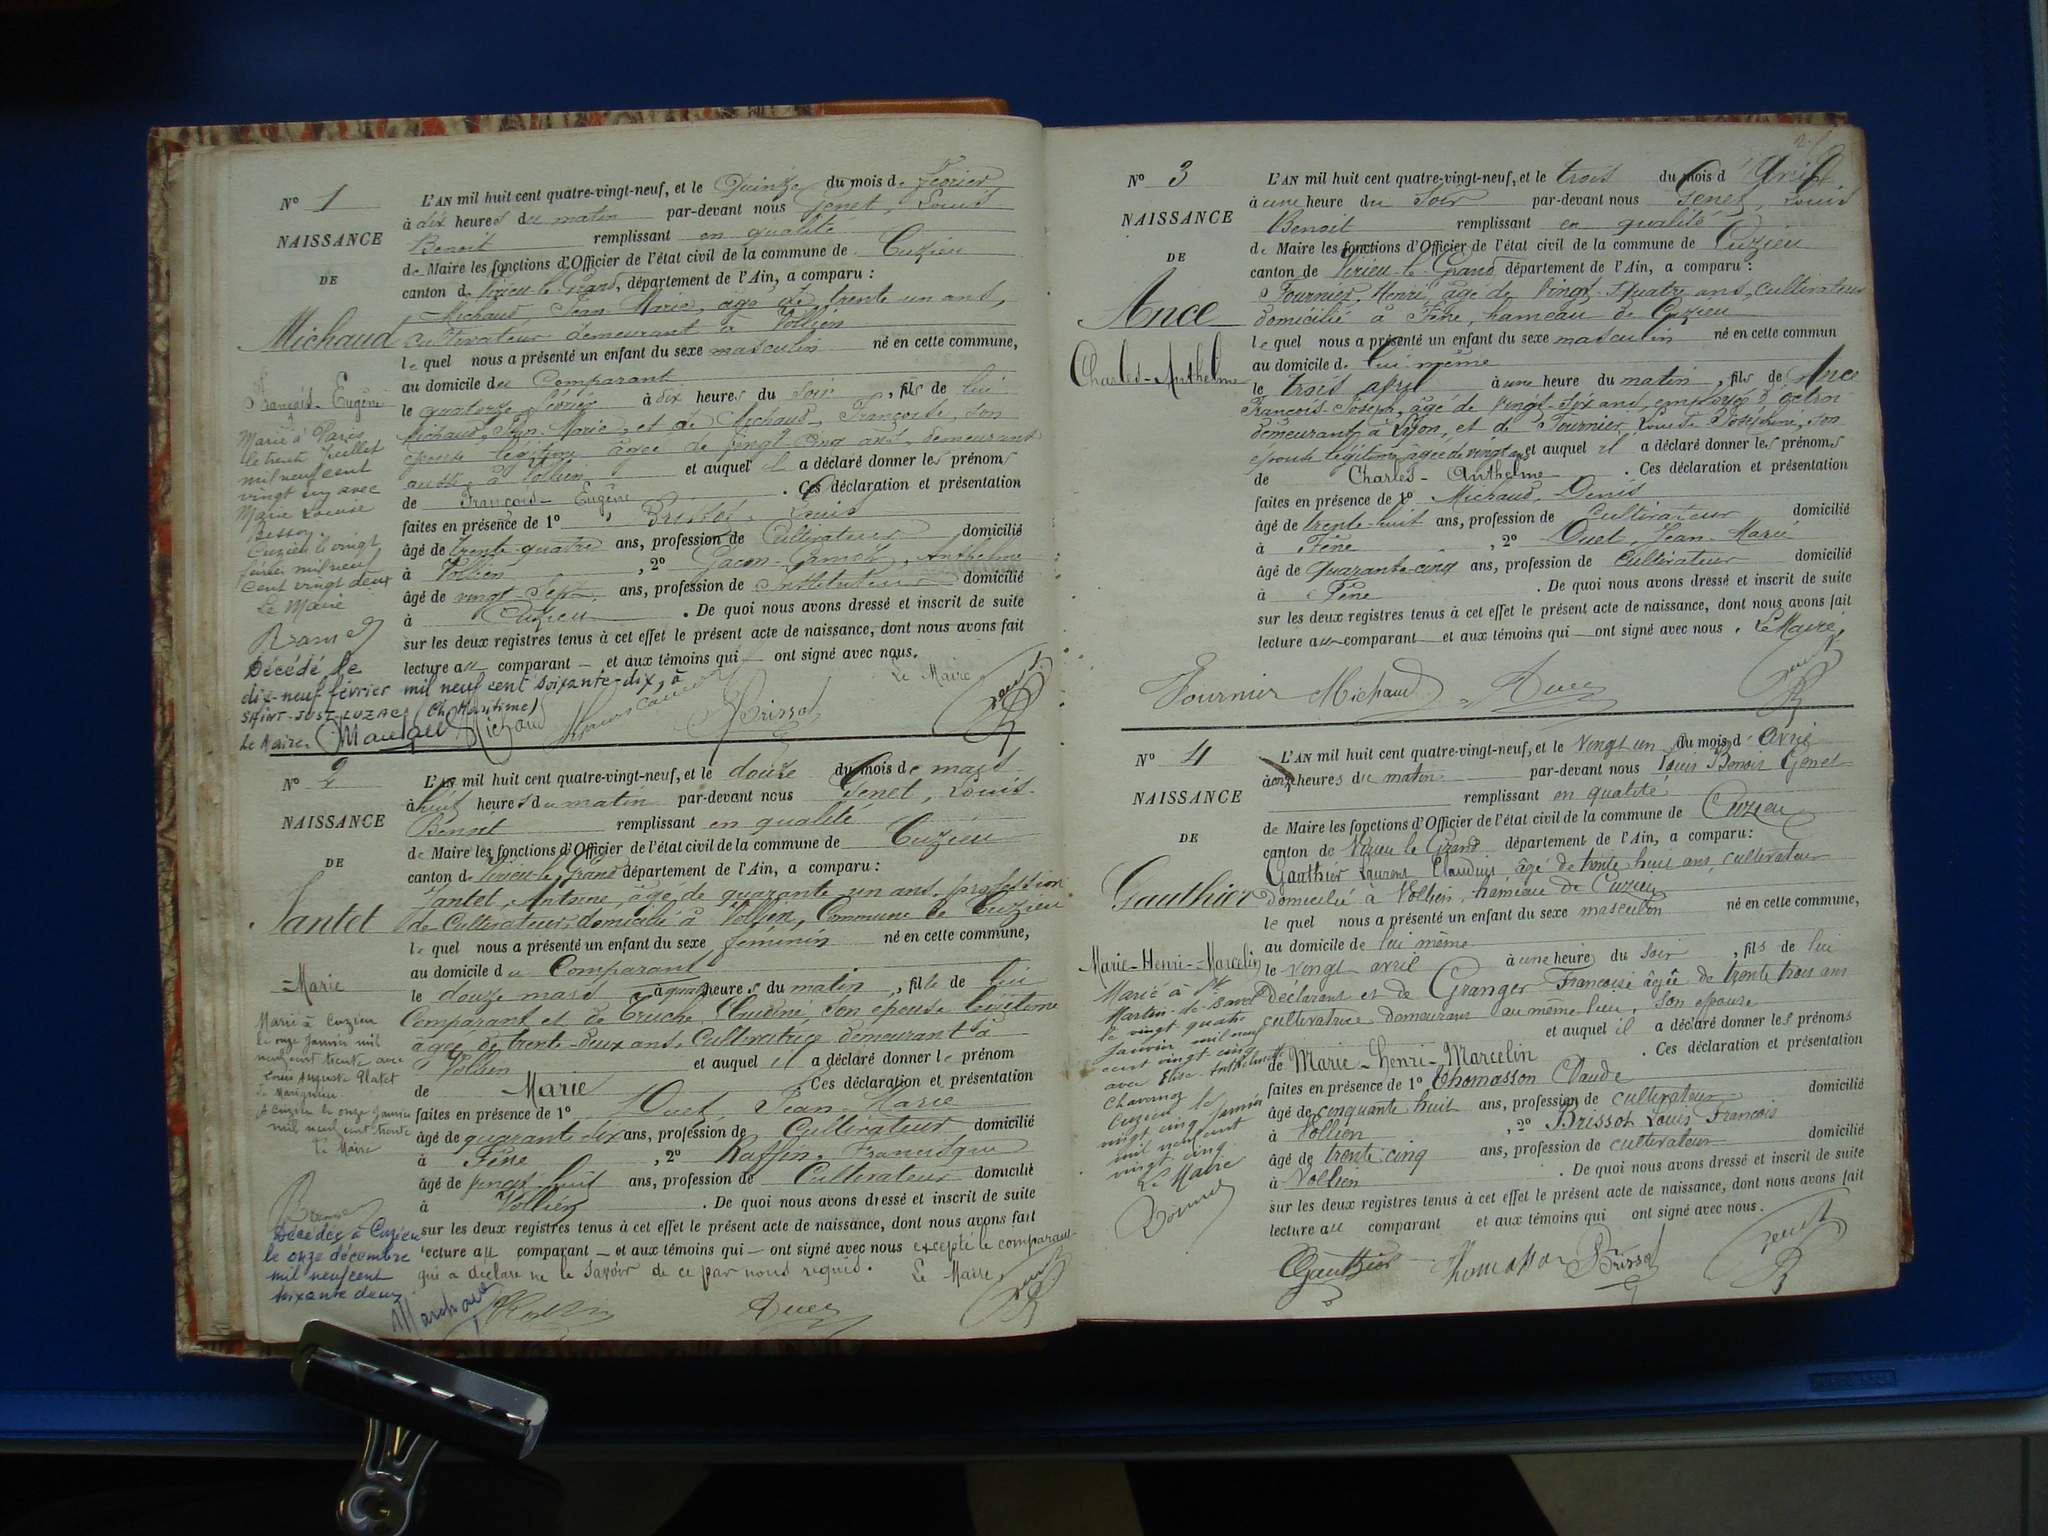 N° 1
NAISSANCE
DE
Michaud
François-Eugène
Marié à Paris
le trente Juillet
mil neuf cent
vingt un avec
Marie Louise
Besson.
Cuzieu le vingt
février mil neuf
cent vingt deux
Le Maire
Décédé le
dix-neuf février mil neuf cent soixante-dix, à
SAINT-JUST-LUZAC (Ch. Maritime)
Le Maire,
L'AN mil huit cent quatre-vingt-neuf, et le Quinze du mois de février
à dix heures du matin par-devant nous Genet, Louis
Benoit remplissant en qualité
de Maire les fonctions d'Officier de l'état civil de la commune de Cuzieu
canton de Virieu-le-Grand, département de l'Ain, a comparu :
Michaud, Jean Marie, âgé de trente un ans,
cultivateur demeurant à Vollien
lequel nous a présenté un enfant du sexe masculin né en cette commune,
au domicile du Comparant
le quatorze février à dix heures du soir, fils de lui
Michaud, Jean-Marie, et de Michaud, Françoise, son
épouse légitime âgée de vingt cinq ans, demeurant
aussi à Vollien et auquel il a déclaré donner les prénoms
de François-Eugène. Ces déclaration et présentation
faites en présence de 1° Brissot, Louis
âgé de trente-quatre ans, profession de Cultivateur domicilié
à Vollien, 2° Anthelme
âgé de vingt-sept ans, profession de Instituteur domicilié
à Cuzieu. De quoi nous avons dressé et inscrit de suite
sur les deux registres tenus à cet effet le présent acte de naissance, dont nous avons fait
lecture au comparant et aux témoins qui ont signé avec nous.
Le Maire
Michaud Brissot
N° 2
NAISSANCE
DE
Jantet
Marie
Marié à Cuzieu
le onze Janvier mil
neuf cent trente avec
Louis Auguste Platet
de Marignieu
Cuzieu le onze Janvier
mil neuf cent trente
Le Maire
Décédée à Cuzieu
le onze décembre
mil neuf cent
soixante deux
L'AN mil huit cent quatre-vingt-neuf, et le douze du mois de mars
à huit heures du matin par-devant nous Genet, Louis-
Benoit remplissant en qualité
de Maire les fonctions d'Officier de l'état civil de la commune de Cuzieu
canton de Virieu-le-Grand département de l'Ain, a comparu :
Jantet, Antoine, âgé de quarante un ans, profession
de Cultivateur, domicilié à Vollien, Commune de Cuzieu
lequel nous a présenté un enfant du sexe féminin né en cette commune,
au domicile du Comparant
le douze mars à quatre heures du matin, fille de lui
Comparant et de Truche Claudine, son épouse légitime
âgée de trente-deux ans, Cultivatrice demeurant à
Vollien et auquel il a déclaré donner le prénom
de Marie. Ces déclaration et présentation
faites en présence de 1° Duet, Jean-Marie
âgé de quarante-six ans, profession de Cultivateur domicilié
à Fêne, 2° Raffin, Francisque
âgé de vingt-huit ans, profession de Cultivateur domicilié
à Vollien. De quoi nous avons dressé et inscrit de suite
sur les deux registres tenus à cet effet le présent acte de naissance, dont nous avons fait
lecture au comparant et aux témoins qui ont signé avec nous excepté le comparant
qui a déclaré ne le savoir de ce par nous requis. Le Maire
N° 3
NAISSANCE
DE
Ance
Charles-Anthelme
L'AN mil huit cent quatre-vingt-neuf, et le trois du mois d'Avril
à une heure du soir par-devant nous Genet, Louis
Benoit remplissant en qualité
de Maire les fonctions d'Officier de l'état civil de la commune de Cuzieu
canton de Virieu-le-Grand département de l'Ain, a comparu :
Fournier, Henri, âgé de vingt-quatre ans, cultivateur
domicilié à Fêne, hameau de Cuzieu
lequel nous a présenté un enfant du sexe masculin né en cette commun
au domicile de lui-même
le trois avril à une heure du matin, fils de Ance
François-Joseph, âgé de vingt-six ans, employé d'octroi
demeurant à Lyon, et de Fournier, Louise Joséphine, son
épouse légitime âgée de vingt ans et auquel il a déclaré donner les prénoms
de Charles-Anthelme. Ces déclaration et présentation
faites en présence de 1° Michaud, Denis
âgé de trente-huit ans, profession de cultivateur domicilié
à Fêne, 2° Duet, Jean-Marie
âgé de quarante-cinq ans, profession de cultivateur domicilié
à Fêne. De quoi nous avons dressé et inscrit de suite
sur les deux registres tenus à cet effet le présent acte de naissance, dont nous avons fait
lecture au comparant et aux témoins qui ont signé avec nous. Le Maire,
Fournier Michaud Duet
N° 4
NAISSANCE
DE
Gauthier
Marie-Henri-Marcelin
Marié à St
Martin-de-Bavel
le vingt quatre
Janvier mil neuf
cent vingt cinq
avec Elise Anthelmette
Chavanoz
Cuzieu le
vingt cinq Janvier
mil neuf cent
vingt cinq
Le Maire
L'AN mil huit cent quatre-vingt-neuf, et le vingt un du mois d'avril
à onze heures du matin par-devant nous Louis Benoit Genet
remplissant en qualité
de Maire les fonctions d'Officier de l'état civil de la commune de Cuzieu
canton de Virieu le Grand département de l'Ain, a comparu :
Gauthier Laurent Claudius, âgé de trente huit ans, cultivateur
domicilié à Vollien, hameau de Cuzieu
lequel nous a présenté un enfant du sexe masculin né en cette commune,
au domicile de lui même
le vingt avril à une heure du soir, fils de lui
déclarant et de Granger Françoise âgée de trente trois ans
cultivatrice demeurant au même lieu, son épouse
et auquel il a déclaré donner les prénoms
de Marie-Henri-Marcelin. Ces déclaration et présentation
faites en présence de 1° Thomasson Claude
âgé de cinquante huit ans, profession de cultivateur domicilié
à Vollien, 2° Brissot Louis François
âgé de trente cinq ans, profession de cultivateur domicilié
à Vollien. De quoi nous avons dressé et inscrit de suite
sur les deux registres tenus à cet effet le présent acte de naissance, dont nous avons fait
lecture au comparant et aux témoins qui ont signé avec nous.
Gauthier Thomasson Brissot